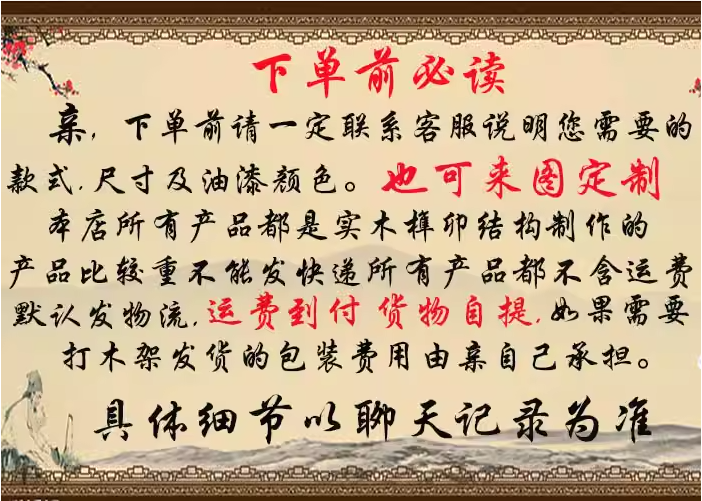 下单前必读
亲，下单前请一定联系客服说明您需要的
款式.尺寸及油漆颜色。也可来图定制
本店所有产品都是实木榫卯结构制作的
产品比较重不能发快递所有产品都不含运费
默认发物流,运费到付 货物自提,如果需要
打木架发货的包装费用由亲自己承担。
具体细节以聊天记录为准